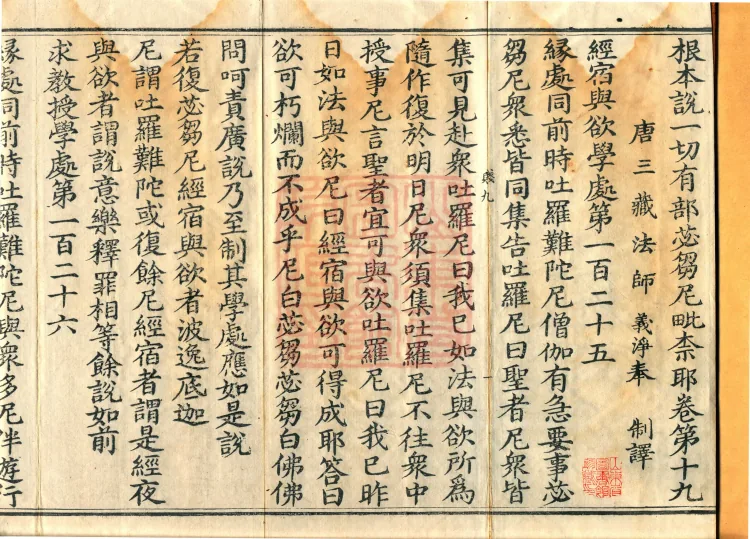 根本說一切有部苾芻尼毗柰耶卷第十九
唐三藏法師義淨奉 制譯
經宿與欲學處第一百二十五
緣處同前時吐羅難陀尼僧伽有急要事苾
芻尼衆悉皆同集告吐羅尼曰聖者尼衆皆
集可見赴衆吐羅尼曰我已如法與欲所爲
隨作復於明日尼衆須集吐羅尼不往衆中
授事尼言聖者宜可與欲吐羅尼曰我已昨
日如法與欲尼曰經宿與欲可得成耶答曰
欲可朽爛而不成乎尼白苾芻苾芻白佛佛
問呵責廣說乃至制其學處應如是說
若復苾芻尼經宿與欲者波逸底迦
尼謂吐羅難陀或復餘尼經宿者謂是經夜
與欲者謂說意樂釋罪相等餘說如前
求教授學處第一百二十六
緣處同前時吐羅難陀尼與眾多尼伴遊行